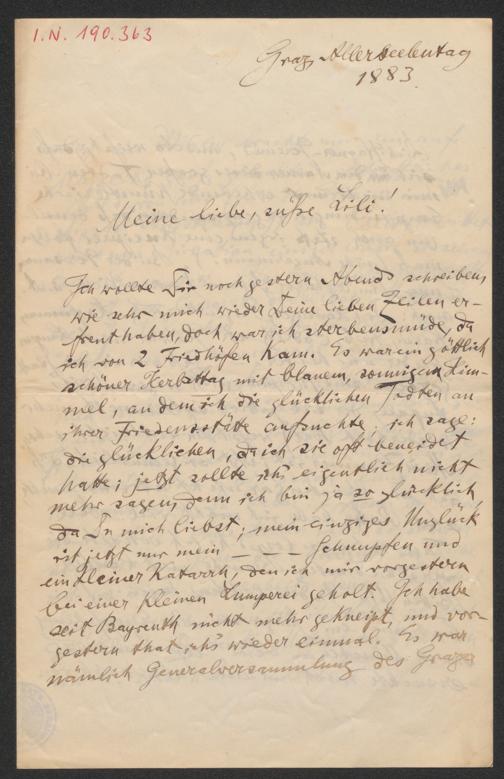 I.N. 190.363
Graz, Allerseelentag
1883.
Meine liebe, süsse Lili!
Ich wollte Dir noch gestern Abend schreiben,
wie sehr mich wieder Deine lieben Zeilen er-
freut haben, doch war ich sterbensmüde, da
ich von 2 Friedhöfen kam. Es war ein göttlich
schöner Herbsttag mit blauem, sonnigem Him-
mel, an dem ich die glücklichen Todten an
ihrer Friedensstätte aufsuchte; ich sage:
die glücklichen, da ich sie oft beneidet
hatte; jetzt sollte ich's eigentlich nicht
mehr sagen, denn ich bin ja so glücklich,
da Du mich liebst; mein einziges Unglück
ist jetzt nur mein — — — Schnupfen und
ein kleiner Katarrh, den ich mir vorgestern
bei einer kleinen Lumperei geholt. Ich habe
seit Bayreuth nicht mehr gekneipt, und vor-
gestern that ich's wieder einmal. Es war
nämlich Generalversammlung des Grazer